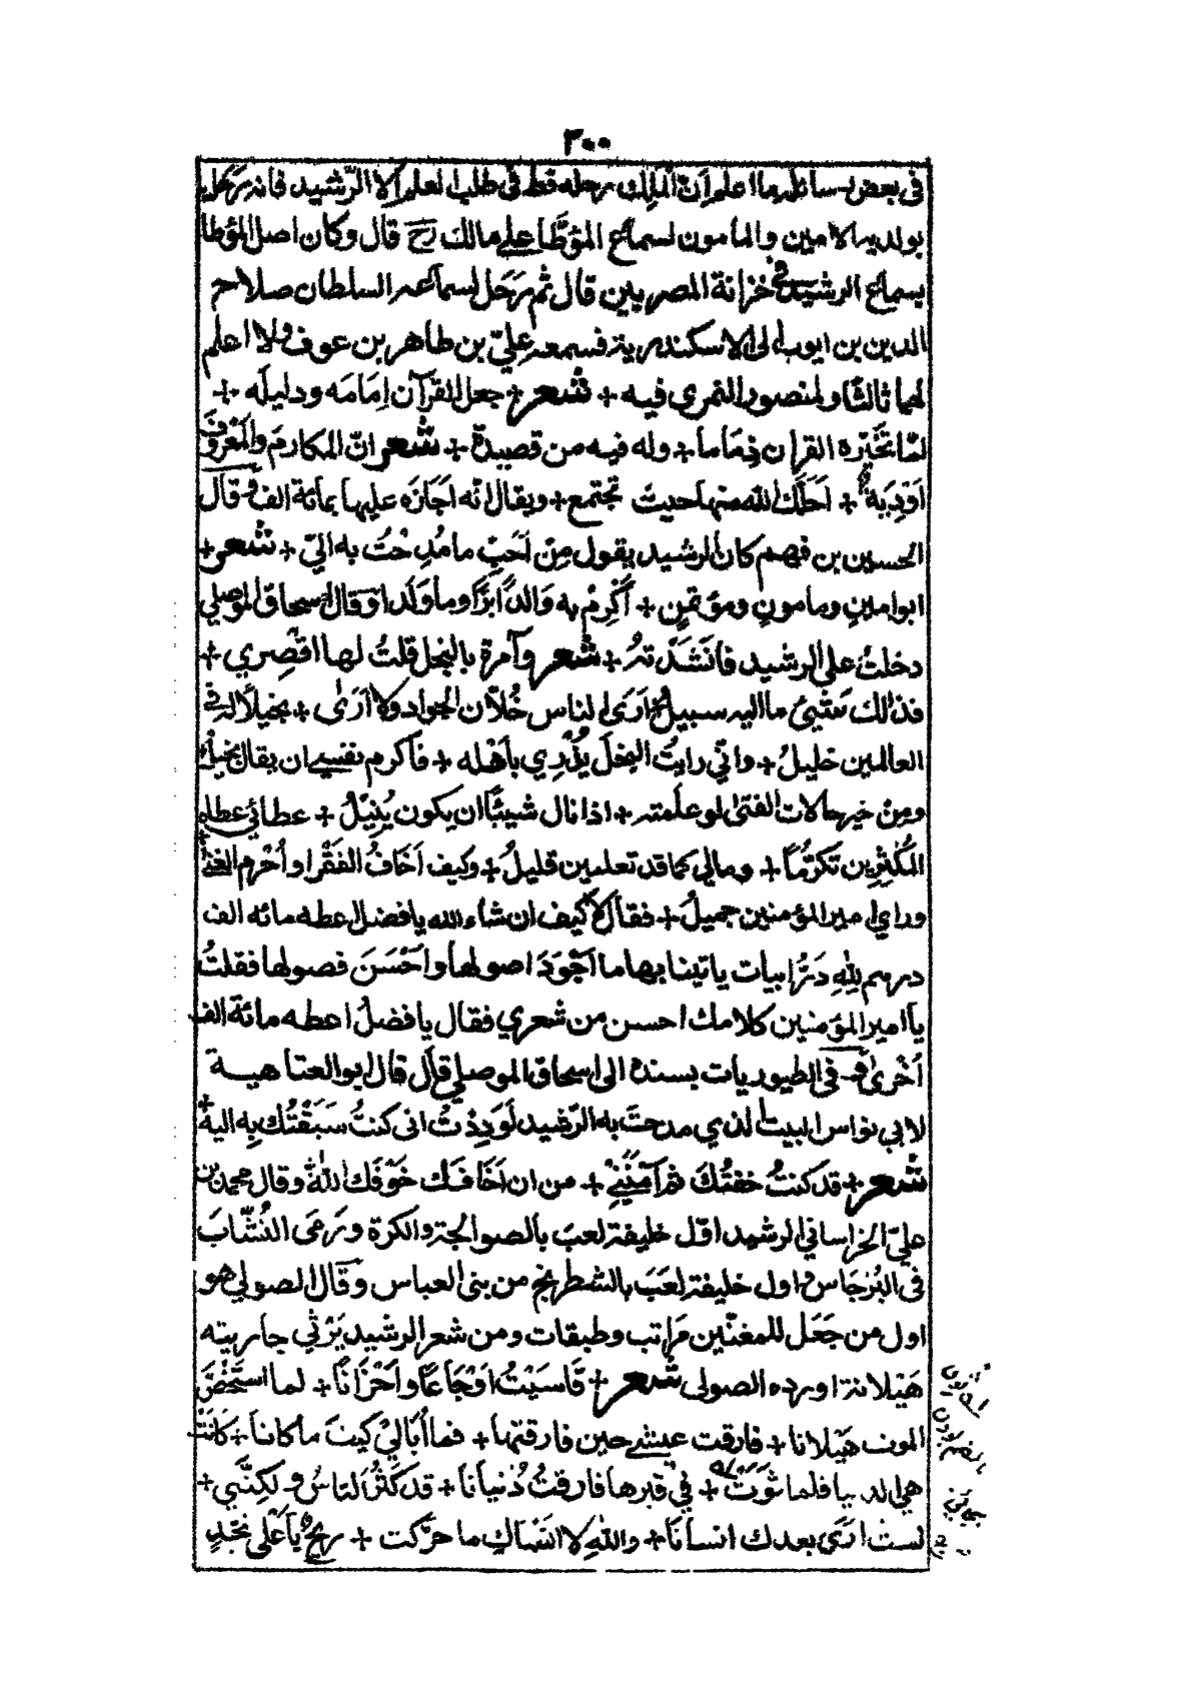 ٣٠٠
في بعض رسائله ما اعلم ان لملك رحلة قط في طلب العلم الا الرشيد فانه رحل
بولديه الامين والمامون لسماع المؤطا على مالك رح قال وكان اصل المؤطا
بسماع الرشيد في خزانة المصريين قال ثم رحل لسماعه السلطان صلاح
الدين بن ايوب الى الاسكندرية فسمعه علي بن طاهر بن عوف ولا اعلم
لهما ثالثا ولمنصور النمري فيه + شعر + جعل القرآن اِمَامَه ودليلَه +
لمّا تخيّره القران ذِمَاما + وله فيه من قصيدة + شعر انّ المكارمَ والمَعْروفَ
اَوْدِيَة + اَحَلَّكَ الله منها حيث تجتمع + ويقال انّه اَجَازَه عليها بمائة الف وقال
الحسين بن فهم كان الرشيد يقول مِن اَحَبّ ما مُدِحْتُ به اليّ + شعر +
ابو امينٍ ومامونٍ ومؤتمنٍ + اَكْرِمْ به وَالدًا بَرًّا وما وَلَدا وقال اسحاق الموصلي
دخلتُ على الرشيد فانشدتهُ + شعر وآمرة بالبخل قلتُ لها اقصِري +
فذالك شيئ ما اليه سبيل ارَى الناس خُلّان الجواد ولا اَرَى + بخيلًا له في
العالمين خليلُ + واني رايتُ البخلَ يُزْرِي بأهْله + فاكرم نفسي ان يقال بخيل
ومِنْ خير حالات الفتى لو علمته + اذا نال شيئًا ان يكون يُنِيْلُ + عطائي عطاء
المُكْثِرِين تكرّمًا + ومالي كما قد تعلمين قليلُ + وكيف اَخَافُ الفَقْر او اُحْرم الغنى
وراي امير المؤمنين جميلُ + فقال لا كيف ان شاء الله يا فضل اعطه مائه الف
درهم لِلّٰهِ دَرُّ ابيات ياتينا بها ما اَجْوَدَ اصولها واَحْسَنَ فصولها فقلتُ
يا امير المؤمنين كلامك احسن من شعري فقال يا فضلُ اعطه مائة الف
اَخْرى في الطيوريات بسنده الى اسحاق الموصلي قال قال ابو العتاهية
لابي نواس البيت الذي مدحتَ به الرّشيد لَوَدِدْتُ انى كنتُ سَبَقْتُك بِه اليه +
شعر + قد كنتُ خفتُكَ ثم اَمَّنَنِيْ + من ان اَخَافَك خَوْفُك اللهَ وقال محمد بن
عليّ الخراساني الرشيد اوّل خليفة لعبَ بالصوالجة والكرة ورَمَى النُشّابَ
في البُرْجَاس واول خليفة لعبَ بالشطرنج من بنى العباس وقال الصولي هو
اول من جَعَل للمغنّين مَرَاتب وطبقات ومن شعر الرشيد يَرْثي جاريته
هَيْلانة اورده الصولى شعر + قَاسَيْتُ اَوْجَاعًا واَحْزَانًا + لما استَخَصَّ
الموت هَيْلانا + فارقت عيشي حين فارقتها + فما اُبَالِيْ كيفَ ما كانا + كَانَت
هي الدنيا فلما ثَوَتْ + في قبرها فارقتُ دُنيانَا + قد كَثُرَ الناسُ ولكِنَّني +
لستُ ارَى بعدك انسانَا + واللهِ لا انساكِ ما حرّكت + ريحٌ بأعْلى نَجْدٍ